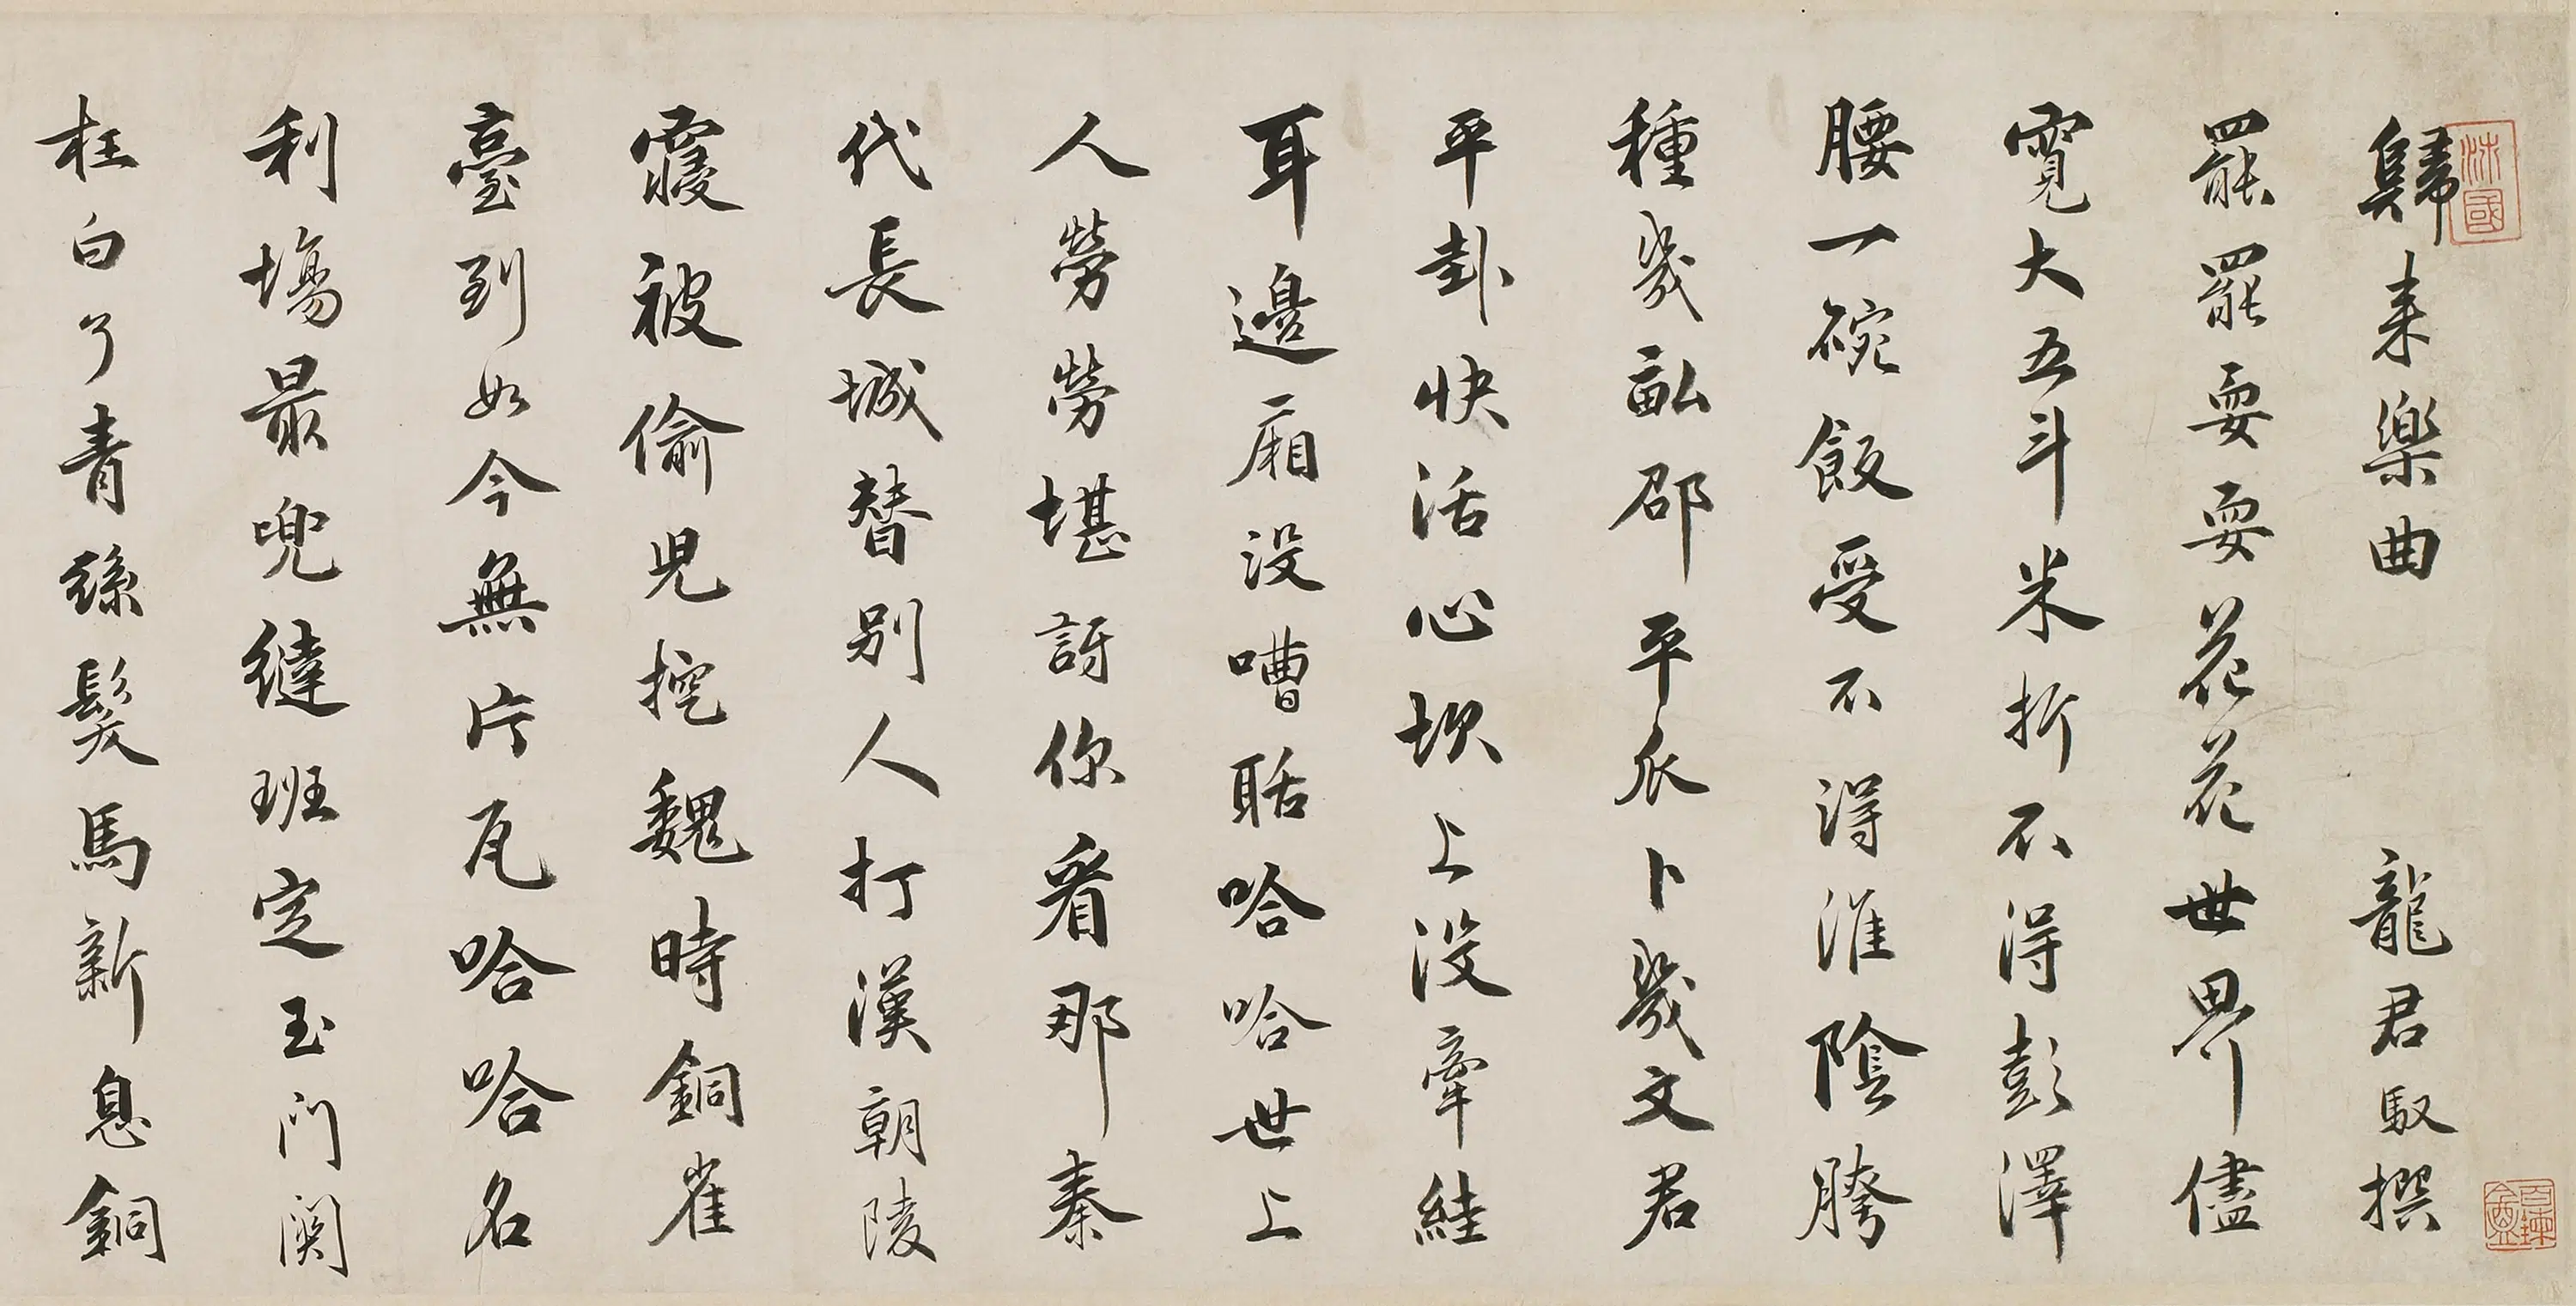 歸来樂曲 龍君馭撰
罷罷耍耍花花世界儘
寛大五斗米折不得彭澤
腰一碗飯受不得淮陰胯
種幾畝邵平瓜卜幾文君
平卦快活心坎上没牽絓
耳邊廂没嘈聒哈哈世上
人勞勞堪訝你看那秦
代長城替別人打漢朝陵
寢被偷兒挖魏時銅雀
臺到如今無片瓦哈哈名
利場最兜緾班定玉門関
枉白了青絲髮馬新息銅
沐國